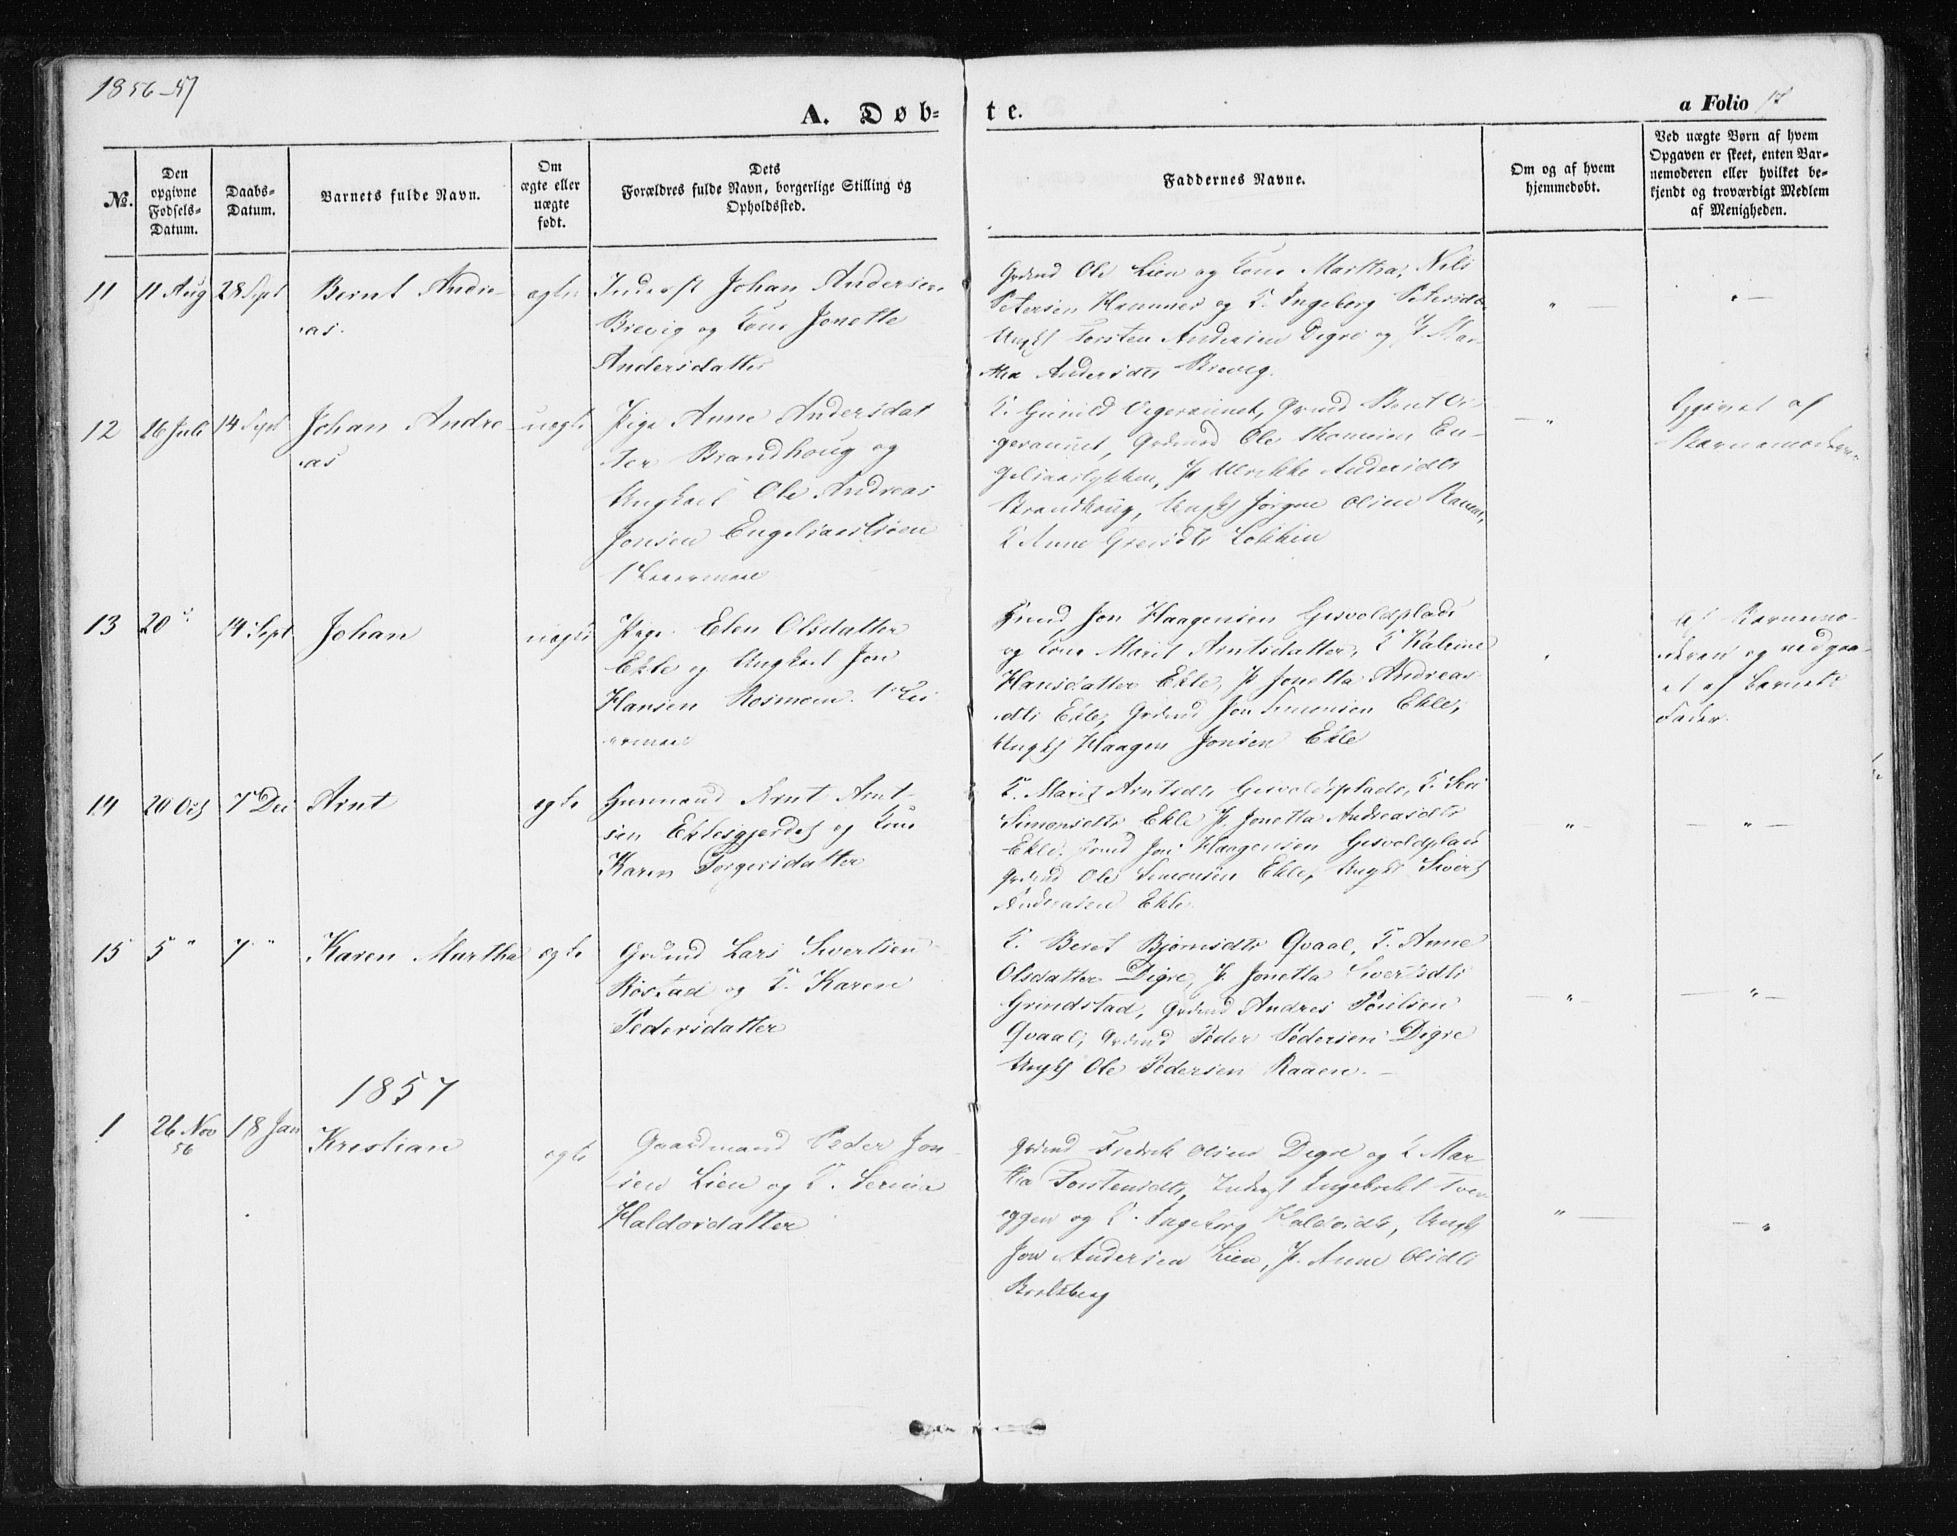 1856-57
A. Døb-
te.
a Folio
No.
Den opgivne Fødsels-Datum.
Daabs-Datum.
Barnets fulde Navn.
Om ægte eller uægte født.
Dets Forældres fulde Navn, borgerlige Stilling og Opholdssted.
Faddernes Navne.
Om og af hvem hjemmedøbt.
Ved uægte Børn af hvem Opgaven er skeet, enten Barnemoderen eller hvilket bekjendt og troværdigt Medlem af Menigheden.
11
11 Aug
28 Sept
Bernt Andre-
as.
ægte
Inderst Johan Andersen
Brevig og Kone Jonette
Andersdatter
Grdmd Ole Lien og Kone Martha, Nils
Petersen Hammer og K. Ingeborg Petersdtr
Ungk Torsten Andersen Digre og P. Mar-
tha Andersdtr Brevig.
12
26 Juli
14 Sept
Johan Andre-
as
uægte
Pige Anne Andersdat
ter Brandhoug og
Ungkarl Ole Andreas
Jonsen Engelsaastrøen
1 Leiermaal
K. Gunild
Grdmd Ole Thomesen En-
gelsaaslykken, P. Ulrikke Andersdtr
Brandhoug, Ungk Jørgen Olsen
K Anne Løkken
Opgivet af
Barnemoderen
13
20 "
14 Sept
Johan
uægte
Pige Elen Olsdatter
Ekle og Ungkarl Jon
Hansen Rosmoen. 1 Lei
ermaal
Jon Haagensen Gisvoldplads
og Kone Marit Arntsdatter, K
Hansdatter Ekle, P Jonetta Andreas
dtr Ekle, Grdmd Jon Simonsen Ekle,
Ungk Haagen Jonsen Ekle
Af Barnemo-
deren og vedgaa-
et af Barnets
Fader.
14
20 Oct
7 Dec
Arnt
ægte
Huusmand Arnt Arnt-
sen Eklesgjerdet og Kone
Karen Torgersdatter
K. Marit Arntsdtr Gisvoldsplads, K. Seri
Simonsdtr Ekle P. Jonetta Andreasdtr
Ekle. Jon Haagensen Gisvoldplads
Grdmd Ole Simonsen Ekle, Ungk Sivert
Andersen Ekle
15
5 "
7 "
Karen Martha
ægte
Grdmd Lars Sivertsen
Røstad og K. Karen
Pedersdatter
K. Beret Bjørnsdtr Qvaal, K. Anne
Olsdatter Digre, P. Jonetta Sivertsdtr
Grindstad, Grdmd Andres Poulsen
Qvaal, Grdmd Peder Pedersen Digre
Ungk Ole Pedersen Raaen.
1857
1
26 Nov
56
18 Jan
Kristian
ægte
Gaardmand Peder Jon-
sen Lien og K. Serina
Haldorsdatter
Grdmd Fredrik Olsen Digre og K Mar-
tha Torstensdtr, Inderst Ingebrekt Tver-
eggen og K. Ingeborg Haldorsdtr, Ungk
Jon Andersen Lien, P. Anne Olsdtr